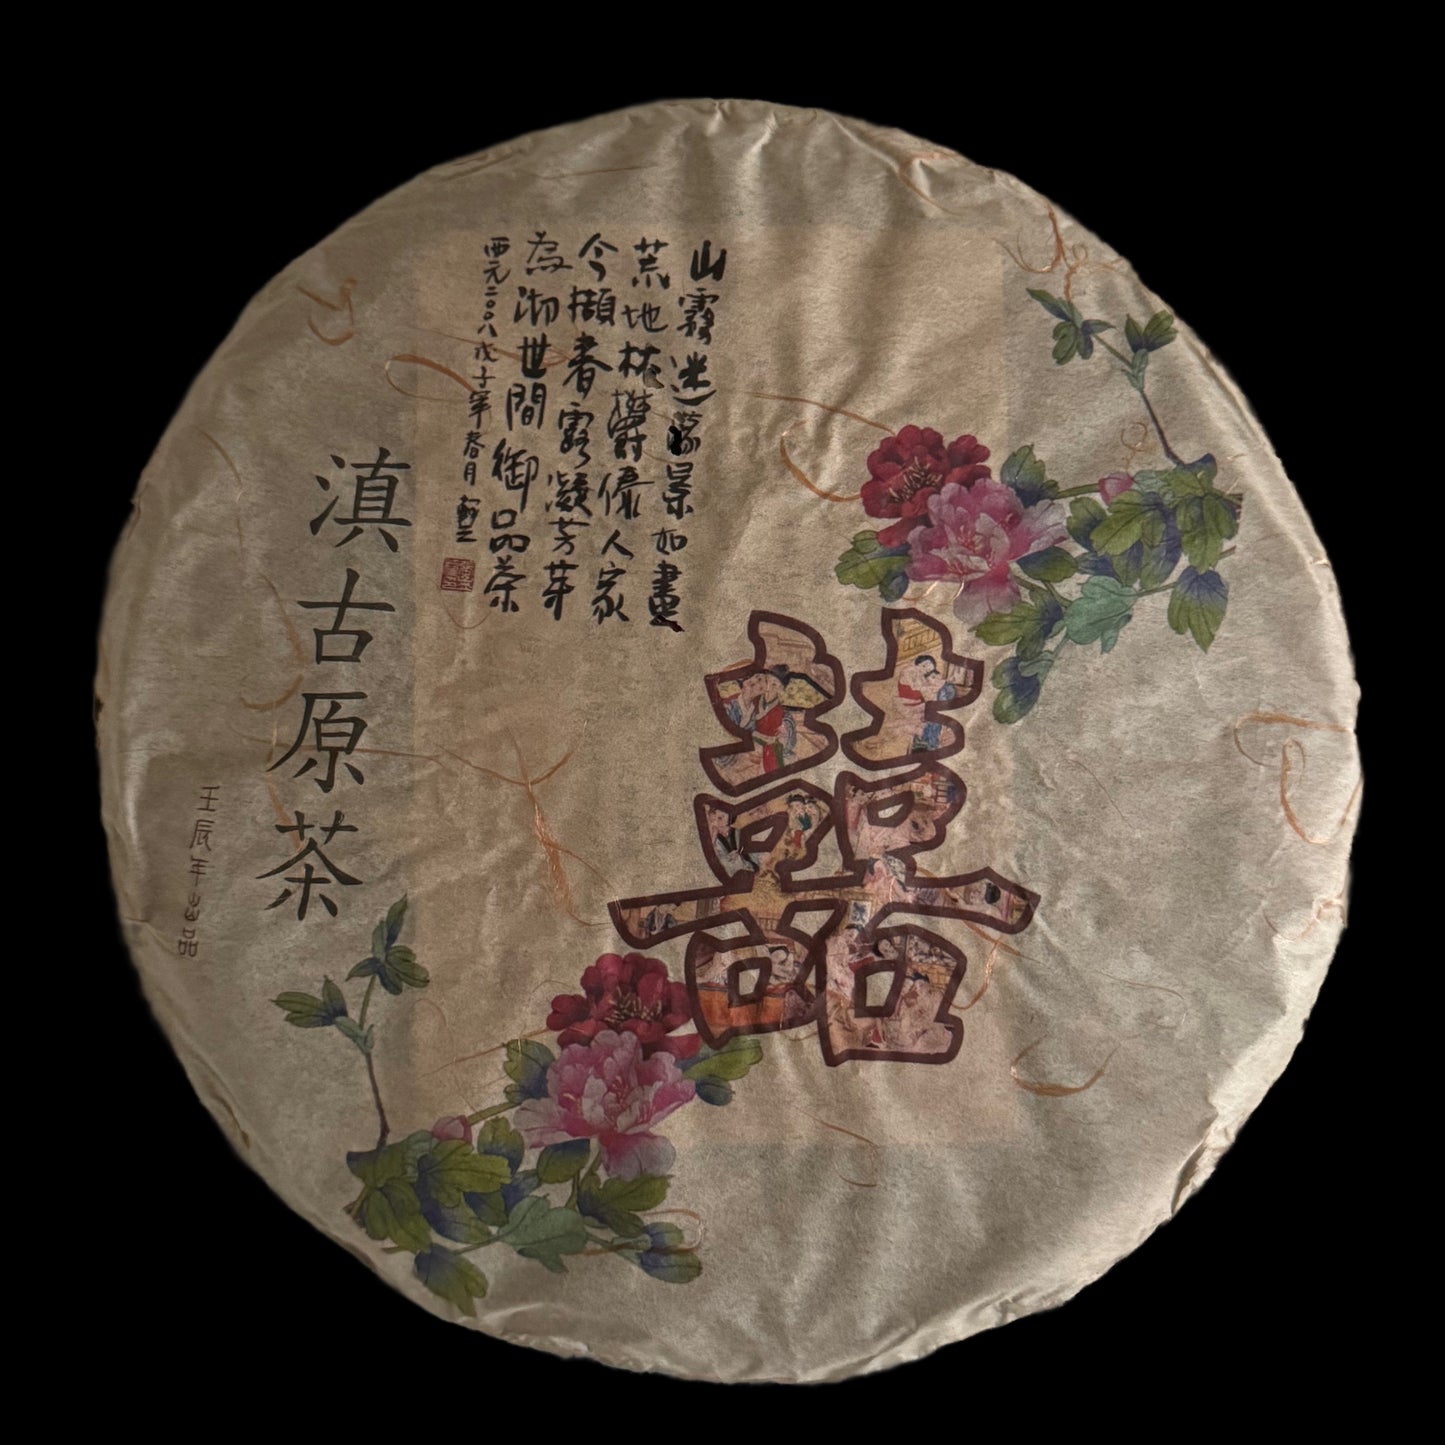 山霧迷濛景如畫
荒地林欝傣人家
今擷春露凝芳芽
為沏世間御品茶
西元二〇〇八戊子年春月
囍
滇古原茶
壬辰年出品